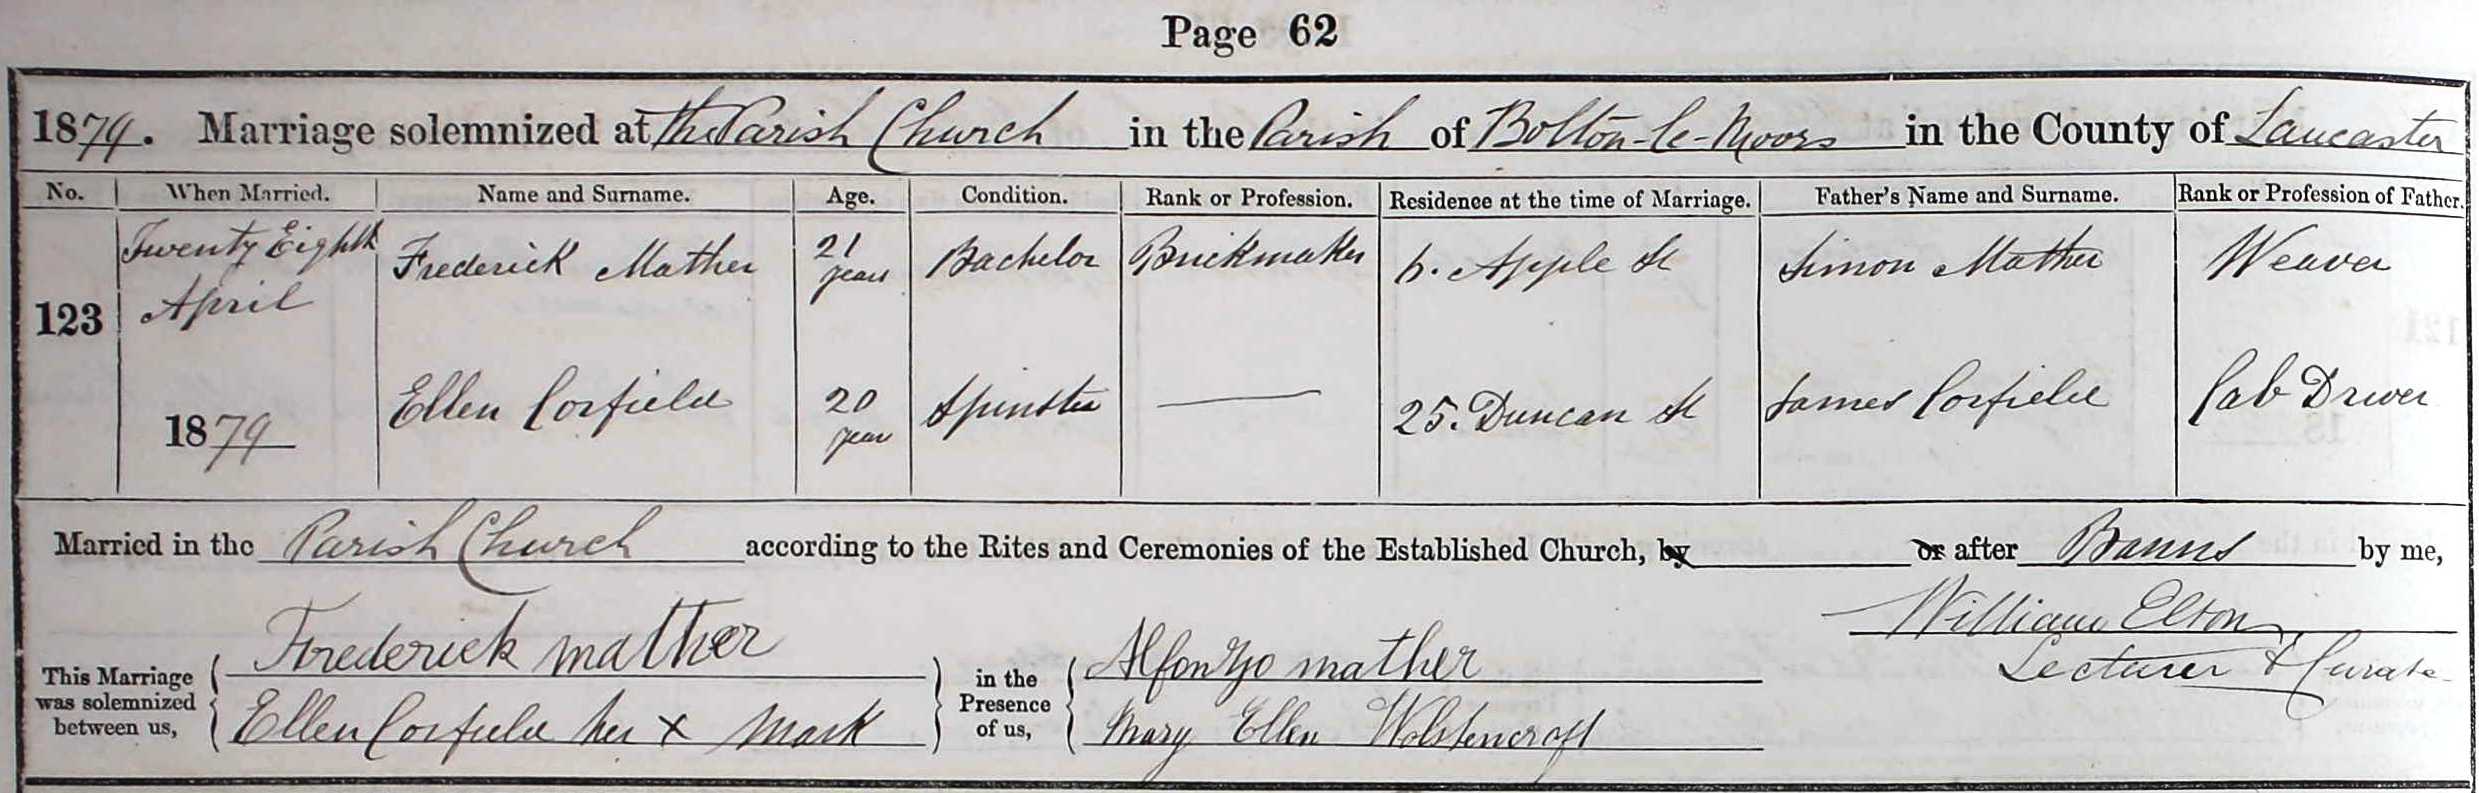 Page 62
1879. Marriage solemnized at the Parish Church in the Parish of Bolton-le-Moors in the County of Lancaster
No. When Married. Name and Surname. Age. Condition. Rank or Profession. Residence at the time of Marriage. Father's Name and Surname. Rank or Profession of Father.
123 Twenty Eighth April 1879
Frederick Mather 21 years Bachelor Brickmaker 6. Apple St Simon Mather Weaver
Ellen Corfield 20 years Spinster — 25. Duncan St James Corfield Cab Driver
Married in the Parish Church according to the Rites and Ceremonies of the Established Church, by or after Banns by me,
William Elton
Lecturer & Curate
This Marriage was solemnized between us,
Frederick Mather
Ellen Corfield her x Mark
in the Presence of us,
Alfonzo Mather
Mary Ellen Wolstencroft